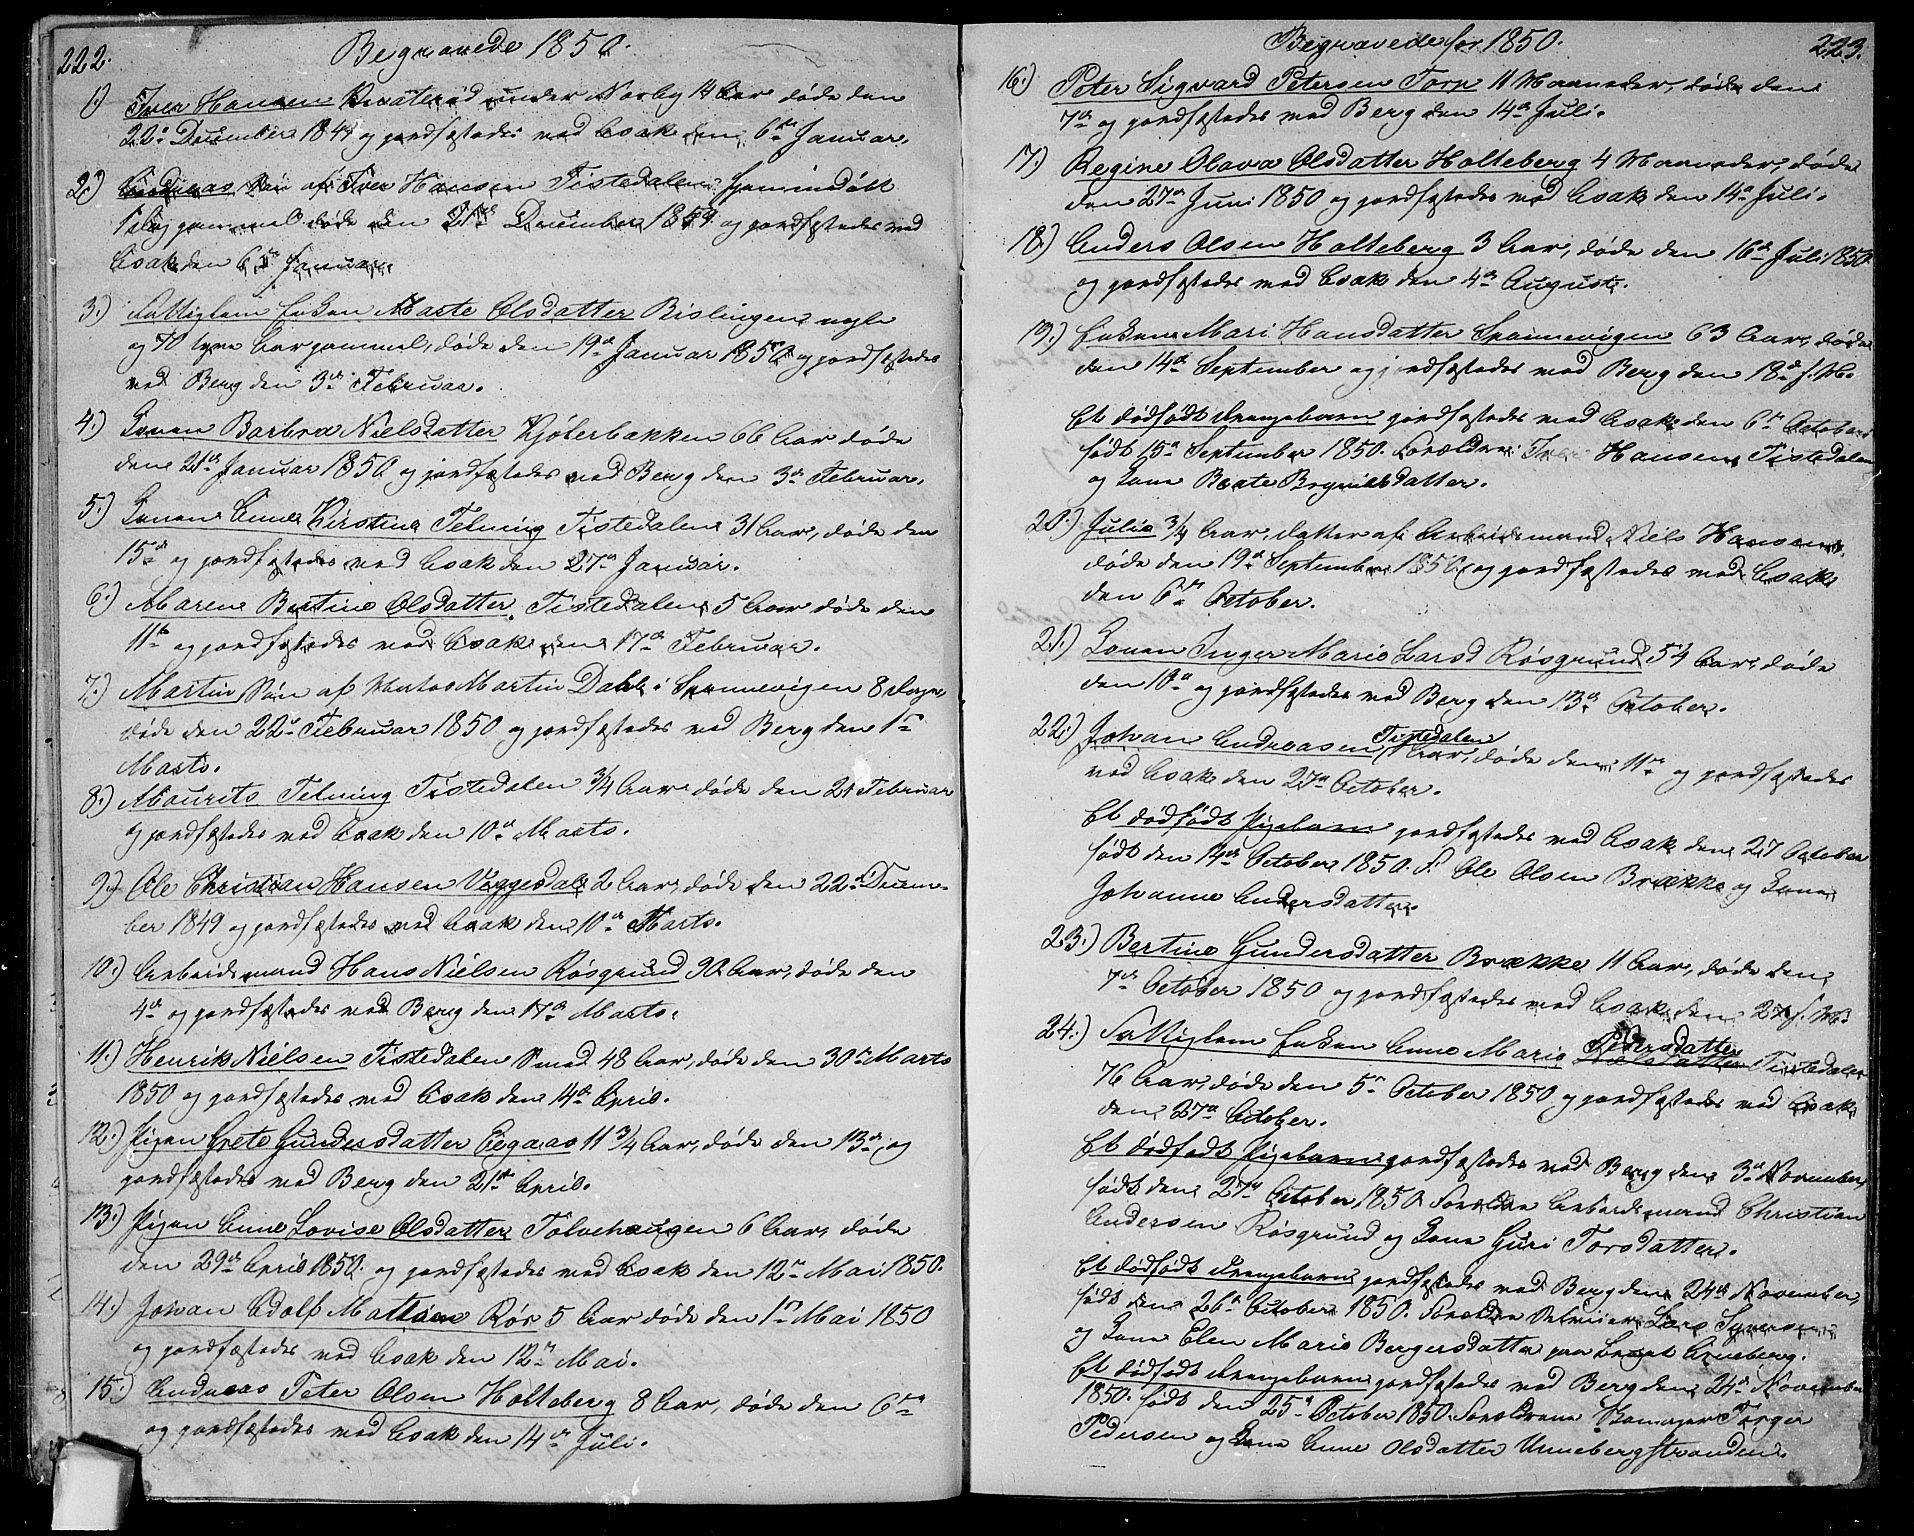 222.
Begravede 1850.
1.) Iver Hansen under Norby 14 Aar døde den
22de December 1849 og jordfæstedes ved Asak den 6te Januar.
2.) Andreas Søn af Iver Hansen Tistedalen
1 dag gammel døde den 21de December 1849 og jordfæstedes ved
Asak den 6te Januar
3.) Fattiglem Enken Marte Olsdatter Bislingen
og 70 Aar gammel, døde den 19de Januar 1850 og jordfæstedes
ved Berg den 3de Februar.
4.) Konen Barbra Nielsdatter Kjøterbakken 66 Aar døde
den 21de Januar 1850 og jordfæstedes ved Berg den 3de Februar.
5.) Konen Anne Kirstine Telning Tistedalen 31 Aar, døde den
15de og jordfæstedes ved Asak den 27de Januar.
6.) Maren Bertine Olsdatter Tistedalen 5 Aar døde den
11te og jordfæstedes ved Asak den 17de Februar.
7.) Martin Søn af Martin Dahl i Sponnevigen 8 Dage,
døde den 22de Februar 1850 og jordfæstedes ved Berg den 1ste
Marts.
8.) Maurits Telning Tistedalen 3/4 Aar døde den 21 Februar
og jordfæstedes ved Asak den 10de Marts.
9.) Ole Christian Hansen Veggesdal 2 Aar, døde den 22de Decem-
ber 1849 og jordfæstedes ved Asak den 10de Marts.
10.) Arbeidsmand Hans Nielsen Røsgrund 30 Aar, døde den
4de og jordfæstedes ved Berg den 17de Marts.
11.) Henrik Nielsen Tistedalen Smed 48 Aar, døde den 30te Marts
1850 og jordfæstedes ved Asak den 14de April.
12.) Pigen Grete Gundersdatter Eegaas 11 3/4 Aar, døde den 13de og
jordfæstedes ved Berg den 21de April.
13.) Pigen Anne Lovise Olsdatter Tolvehaugen 6 Aar, døde
den 29de April 1850. og jordfæstedes ved Asak den 12te Mai 1850.
14.) Johan Adolf Røs 5 Aar døde den 1ste Mai 1850
og jordfæstedes ved Asak den 12te Mai.
15.) Andreas Peter Olsen Holteberg 8 Aar, døde den 6te
og jordfæstedes ved Asak den 14de Juli.
Begravede for 1850.
223.
16.) Peter Sigvard Petersen Torp 11 Maaneder, døde den
7de og jordfæstedes ved Berg den 14de Juli.
17.) Regine Olava Olsdatter Holteberg 4 Maaneder, døde
den 27de Juni 1850 og jordfæstedes ved Asak den 14de Juli.
18.) Anders Olsen Holteberg 3 Aar, døde den 16de Juli 1850.
og jordfæstedes ved Asak den 4de August.
19.) Enken Mari Hansdatter Sponnevigen 63 Aar, døde
den 14de September og jordfæstedes ved Berg den 18de s. M.
Et dødfødt Drengebarn jordfæstedes ved Asak den 6te October
født 15de September 1850. Forældre: Iver Hansen Tistedalen
og Kone Beate Brynildsdatter.
20.) Julie 3/4 Aar, datter af Arbeidsmand Niels Hansen
døde den 19de September 1850 og jordfæstedes ved Asak
den 6te October.
21.) Konen Inger Marie Larsd Røsgrund 54 Aar, døde
den 10de og jordfæstedes ved Berg den 13de October.
22.) Johan Andreasen Tistedalen Aar, døde den 11te og jordfæstedes
ved Asak den 27de October.
Et dødfødt Pigebarn jordfæstedes ved Asak den 27 October
født den 14de October 1850. F. Ole Olsen Brække og Kone
Johanne Andersdatter.
23.) Bertine Gundersdatter Brække 11 Aar, døde den
7de October 1850 og jordfæstedes ved Asak den 27 s. M.
24.) Fattiglem Enken Anne Marie Pedersdatter Tistedalen
76 Aar, døde den 5te October 1850 og jordfæstedes ved Asak
den 27de October.
Et dødfødt Pigebarn jordfæstedes ved Berg den 3de November
født den 27de October 1850. Forældre Arbeidsmand Christian
Andersen Røsgrund og Kone Guri Torsdatter.
Et dødfødt Drengebarn jordfæstedes ved Berg den 24de November,
født den 26de October 1850. Forældre Lars Syversen
og Kone Elen Marie Bergersdatter paa Arneberg.
Et dødfødt Drengebarn jordfæstedes ved Berg den 24de November
1850. født den 25de October 1850. Forældrene Skomager Torger
Pedersen og Kone Anne Olsdatter Unnebergstranden.